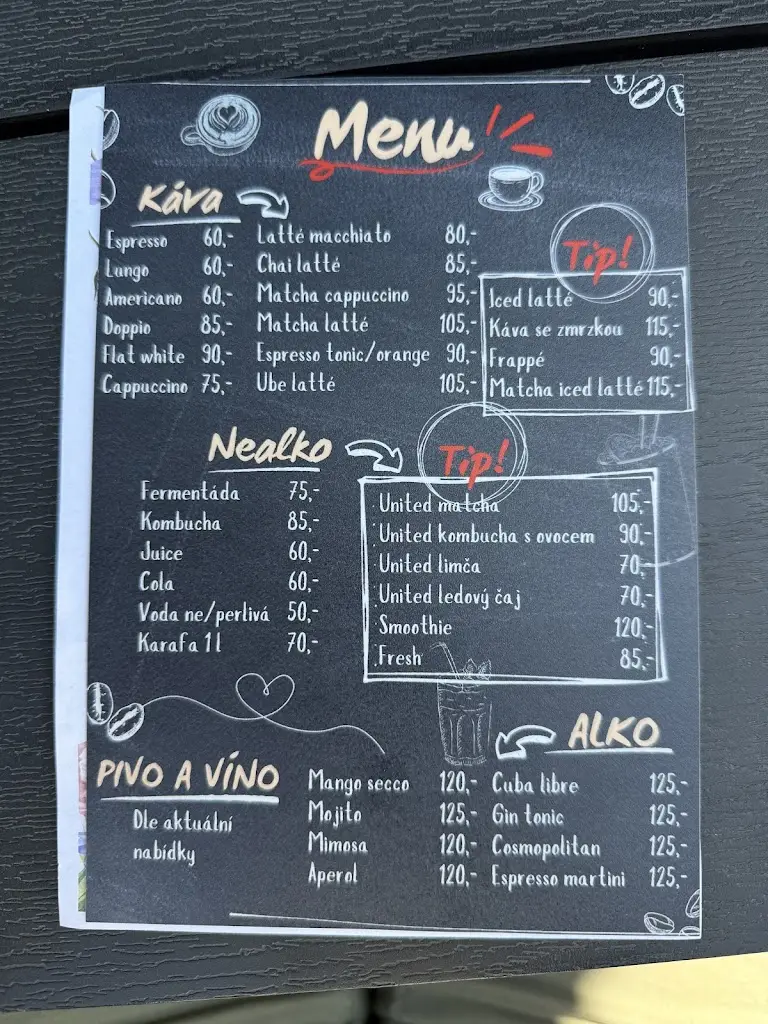 Menu
Káva
Espresso 60,-
Lungo 60,-
Americano 60,-
Doppio 85,-
Flat white 90,-
Cappuccino 75,-
Latté macchiato 80,-
Chai latté 85,-
Matcha cappuccino 95,-
Matcha latté 105,-
Espresso tonic/orange 90,-
Ube latté 105,-
Tip!
Iced latté 90,-
Káva se zmrzkou 115,-
Frappé 90,-
Matcha iced latté 115,-
Nealko
Fermentáda 75,-
Kombucha 85,-
Juice 60,-
Cola 60,-
Voda ne/perlivá 50,-
Karafa 1l 70,-
Tip!
United matcha 105,-
United kombucha s ovocem 90,-
United limča 70,-
United ledový čaj 70,-
Smoothie 120,-
Fresh 85,-
PIVO A VÍNO
Dle aktuální
nabídky
ALKO
Mango secco 120,-
Mojito 125,-
Mimosa 120,-
Aperol 120,-
Cuba libre 125,-
Gin tonic 125,-
Cosmopolitan 125,-
Espresso martini 125,-